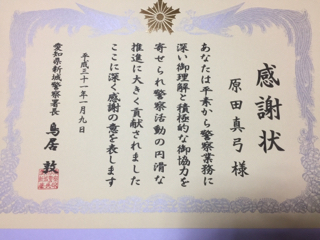 感謝状
原田真弓様
あなたは平素から警察業務に
深い御理解と積極的な御協力を
寄せられ警察活動の円滑な
推進に大きく貢献されました
ここに深く感謝の意を表します
平成三十一年一月九日
愛知県新城警察署長 鳥居 敦